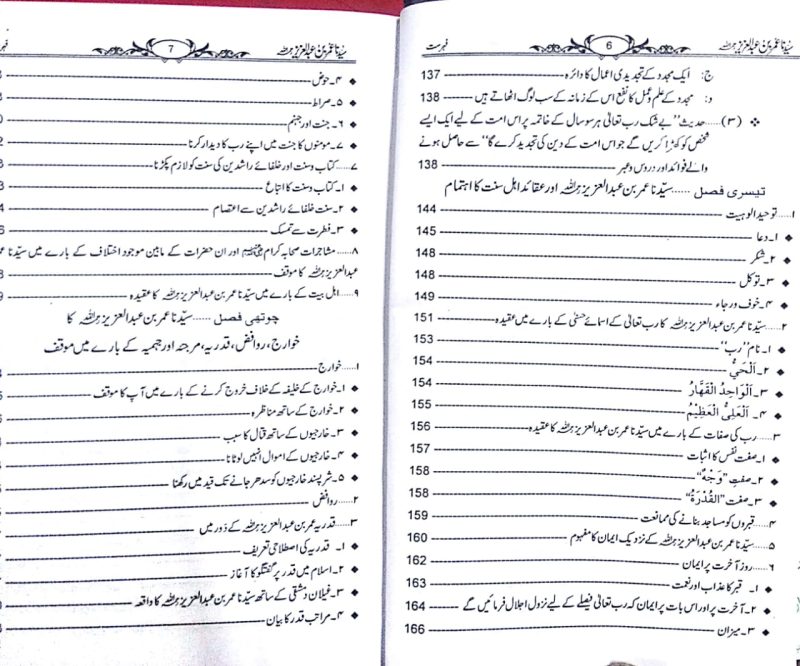 سیّدنا عمر بن عبدالعزیز رحمہ اللہ 6 فہرست
ج: ایک مجدد کے تجدیدی اعمال کا دائرہ 137
د: مجدد کے علم و عمل کا نفع اس کے زمانہ کے سب لوگ اٹھاتے ہیں 138
❖ (۳)...... حدیث ’’بے شک رب تعالیٰ ہر سو سال کے خاتمہ پر اس امت کے لیے ایک ایسے
شخص کو کھڑا کریں گے جو اس امت کے دین کی تجدید کرے گا‘‘ سے حاصل ہونے
والے فوائد اور دروس و عبر 138
تیسری فصل ...... سیّدنا عمر بن عبدالعزیز رحمہ اللہ اور عقائد اہل سنت کا اہتمام
۱...... توحید الوہیت 144
◆ ۱۔ دعا 145
◆ ۲۔ شکر 148
◆ ۳۔ توکل 148
◆ ۴۔ خوف ورجاء 149
۲...... سیّدنا عمر بن عبدالعزیز رحمہ اللہ کا رب تعالیٰ کے اسمائے حسنٰی کے بارے میں عقیدہ 151
◆ ۱۔ نام ’’رب‘‘ 153
◆ ۲۔ اَلْحَیُّ 154
◆ ۳۔ اَلْوَاحِدُ الْقَهَّارُ 154
◆ ۴۔ اَلْعَلِیُّ الْعَظِیْمُ 155
۳...... رب کی صفات کے بارے میں سیّدنا عمر بن عبدالعزیز رحمہ اللہ کا عقیدہ 156
◆ ۱۔ صفت نفس کا اثبات 157
◆ ۲۔ صفتِ ’’وَجْهٌ‘‘ 158
◆ ۳۔ صفت ’’الْقُدْرَةُ‘‘ 158
۴...... قبروں کو مساجد بنانے کی ممانعت 159
۵...... سیّدنا عمر بن عبدالعزیز رحمہ اللہ کے نزدیک ایمان کا مفہوم 160
۶...... روزِ آخرت پر ایمان 162
◆ ۱۔ قبر کا عذاب اور نعمت 163
◆ ۲۔ آخرت پر اور اس بات پر ایمان کہ رب تعالیٰ فیصلے کے لیے نزول اجلال فرمائیں گے 164
◆ ۳۔ میزان 166
سیّدنا عمر بن عبدالعزیز رحمہ اللہ 7
◆ ۴۔ حوض
◆ ۵۔ صراط
◆ ۶۔ جنت اور جہنم
◆ ۷۔ مومنوں کا جنت میں اپنے رب کا دیدار کرنا
۷...... کتاب وسنت اور خلفائے راشدین کی سنت کو لازم پکڑنا
◆ ۱۔ کتاب وسنت کا اتباع
◆ ۲۔ سنت خلفائے راشدین سے اعتصام
◆ ۳۔ فطرت سے تمسک
۸...... مشاجرات صحابہ کرام رضی اللہ عنہم اور ان حضرات کے مابین موجود اختلاف کے بارے میں سیّدنا عمر بن
عبدالعزیز رحمہ اللہ کا موقف
۹...... اہل بیت کے بارے میں سیّدنا عمر بن عبدالعزیز رحمہ اللہ کا عقیدہ
چوتھی فصل ...... سیّدنا عمر بن عبدالعزیز رحمہ اللہ کا
خوارج، روافض، قدریہ، مرجئہ اور جہمیہ کے بارے میں موقف
۱...... خوارج
◆ ۱۔ خوارج کے خلیفہ کے خلاف خروج کرنے کے بارے میں آپ کا موقف
◆ ۲۔ خوارج کے ساتھ مناظرہ
◆ ۳۔ خارجیوں کے ساتھ قتال کا سبب
◆ ۴۔ خارجیوں کے اموال انہیں لوٹانا
◆ ۵۔ شرپسند خارجیوں کو سدھر جانے تک قید میں رکھنا
۲...... روافض
۳...... قدریہ عمر بن عبدالعزیز رحمہ اللہ کے دَور میں
◆ ۱۔ قدریہ کی اصطلاحی تعریف
◆ ۲۔ اسلام میں قدر پر گفتگو کا آغاز
◆ ۳۔ غیلان دمشقی کے ساتھ سیّدنا عمر بن عبدالعزیز رحمہ اللہ کا واقعہ
◆ ۴۔ مراتب قدر کا بیان